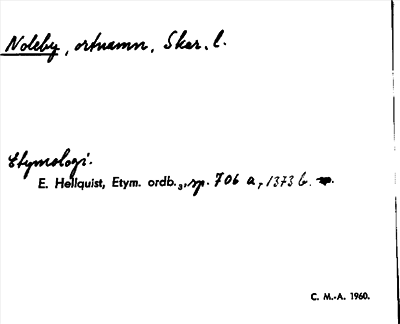 Noleby, ortnamn, Skar. l.
Etymologi.
E. Hellquist, Etym. ordb.3, sp. 706 a, 1373 b.
C. M.-A. 1960.